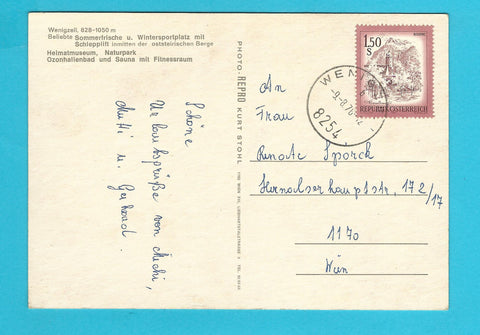 Wenigzell. 828-1050 m
Beliebte Sommerfrische u. Wintersportplatz mit
Schlepplift inmitten der oststeirischen Berge
Heimatmuseum, Naturpark
Ozonhallenbad und Sauna mit Fitnessraum
Schöne
Urlaubsgrüße von Michi,
Mutti u. Gerhard.
PHOTO-REPRO KURT STOHL
1160 WIEN
1.50
S
REPUBLIK ÖSTERREICH
8254
An
Frau
Renate Sporck
Hernalserhauptstr. 172/17
1170
Wien